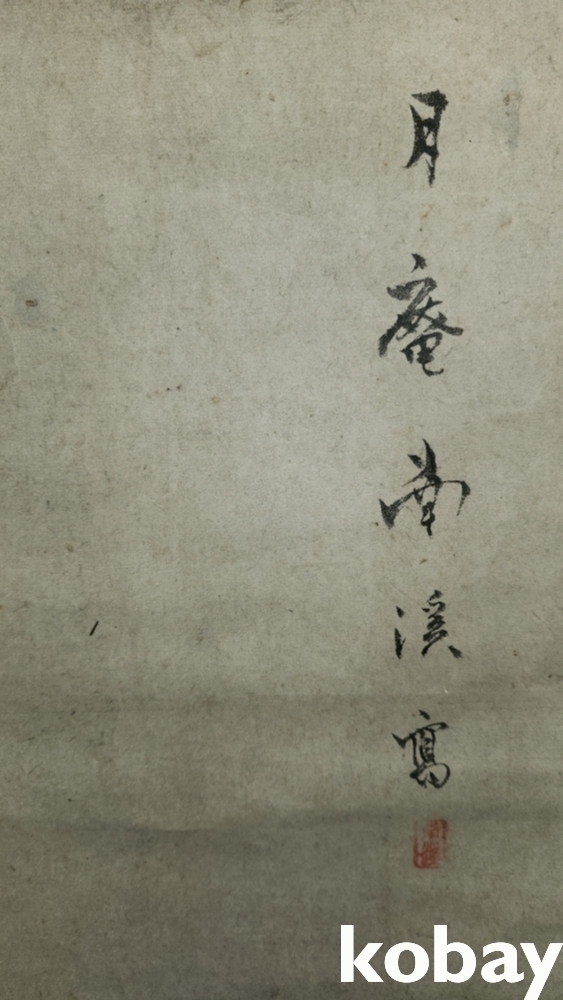 月庵南溪寫
kobay